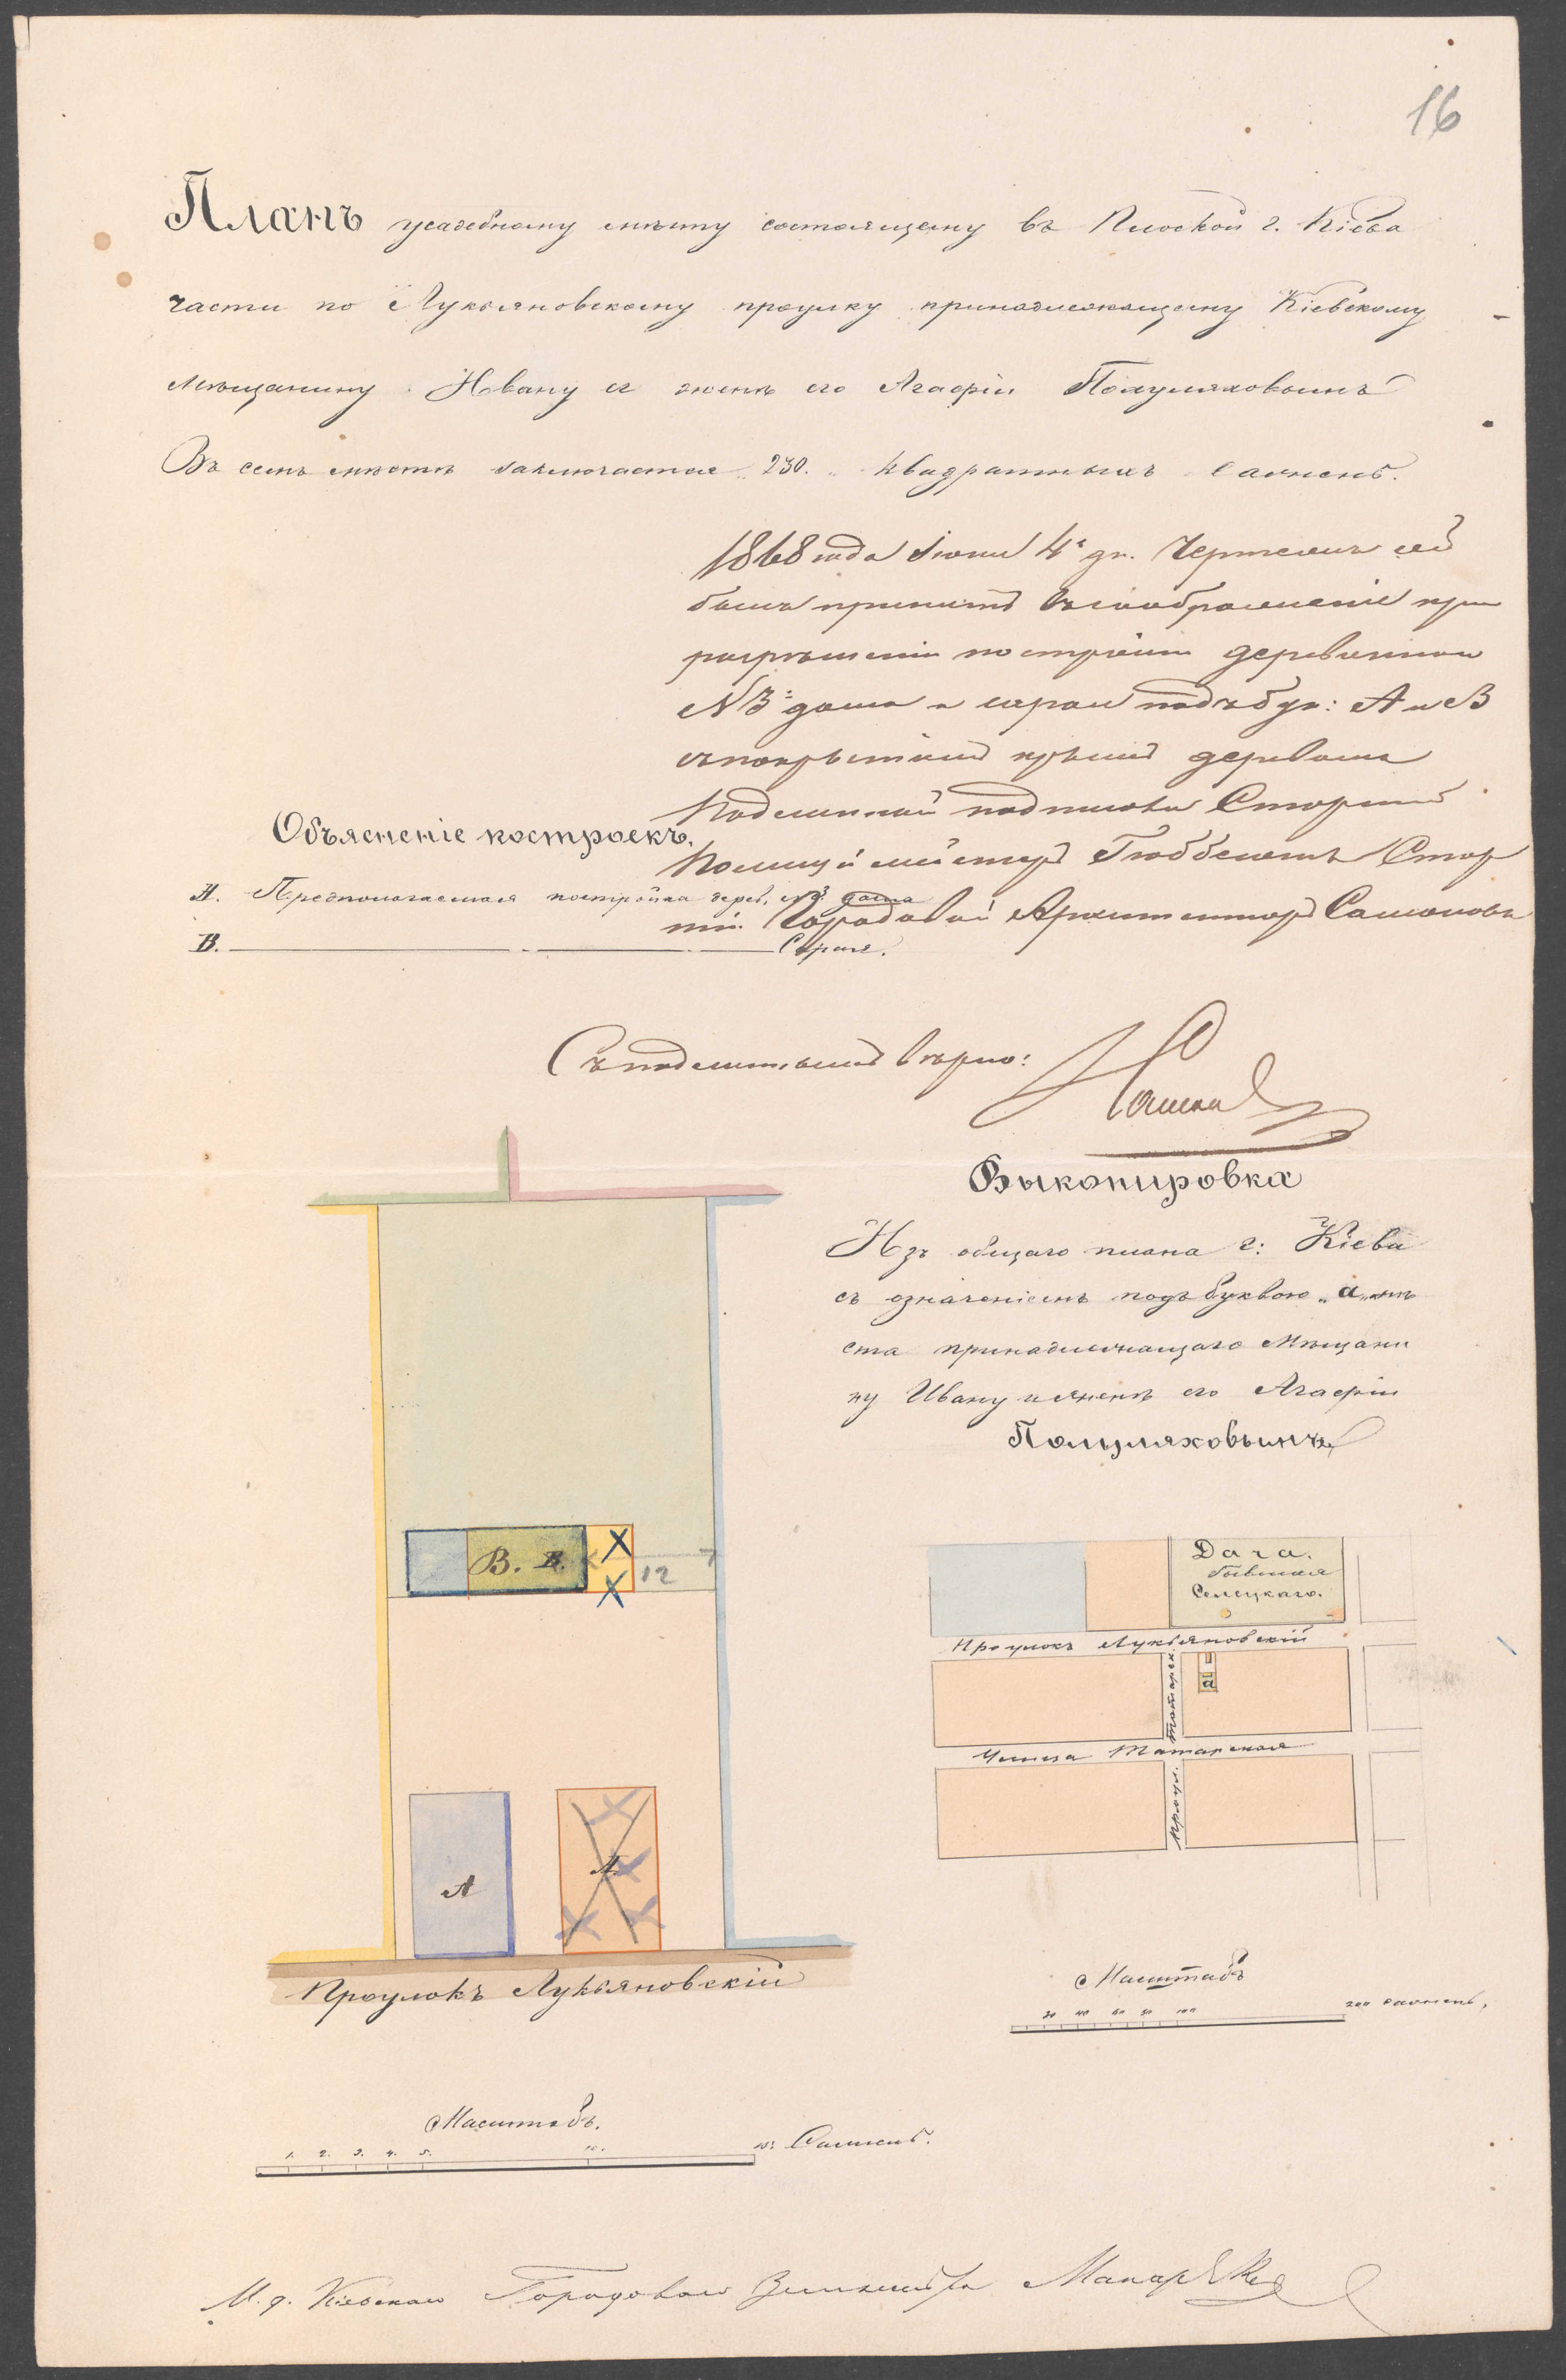 16
Планъ усадебному мѣсту состоящему въ Плоской г. Кіева
части по Лукьяновскому проулку принадлежащему Кіевскому
мѣщанину Ивану и женѣ его Агафіи Полуляховымъ
Въ семъ мѣстѣ заключается 230. квадратныхъ саженъ.
1868 года Іюня 4 дн. Чертежъ сей
былъ принятъ въ соображеніе при
разрѣшеніи постройки деревяннаго
№ 3 дома и сарая подъ бук: А и В
съ покрытіемъ крышъ деревомъ
Подлинный подписали Старшій
Полиціймейстеръ Гюббенетъ Стар
шій Городовой Архитекторъ
Объясненіе построекъ.
А. Предполагаемая постройка дерев. № 3 дома
В. Сарая.
Съ подлиннымъ вѣрно:
Выкопировка
Изъ общаго плана г: Кіева
съ означеніемъ подъ буквою „а„ мѣ
ста принадлежащаго Мѣщани
ну Ивану и женѣ его Агафіи
Полуляховымъ
В. В.
12
А
А.
Проулокъ Лукьяновскій
Дача.
бывшая
Селецкаго.
Проулокъ Лукьяновскій
а
Татарск.
Улица Татарская
проул.
Масштабъ
20 40 60 80 100 200 саженъ.
Масштабъ.
1. 2. 3. 4. 5. 10. 15: Саженъ.
И. д. Кіевскаго Городоваго Землемѣра